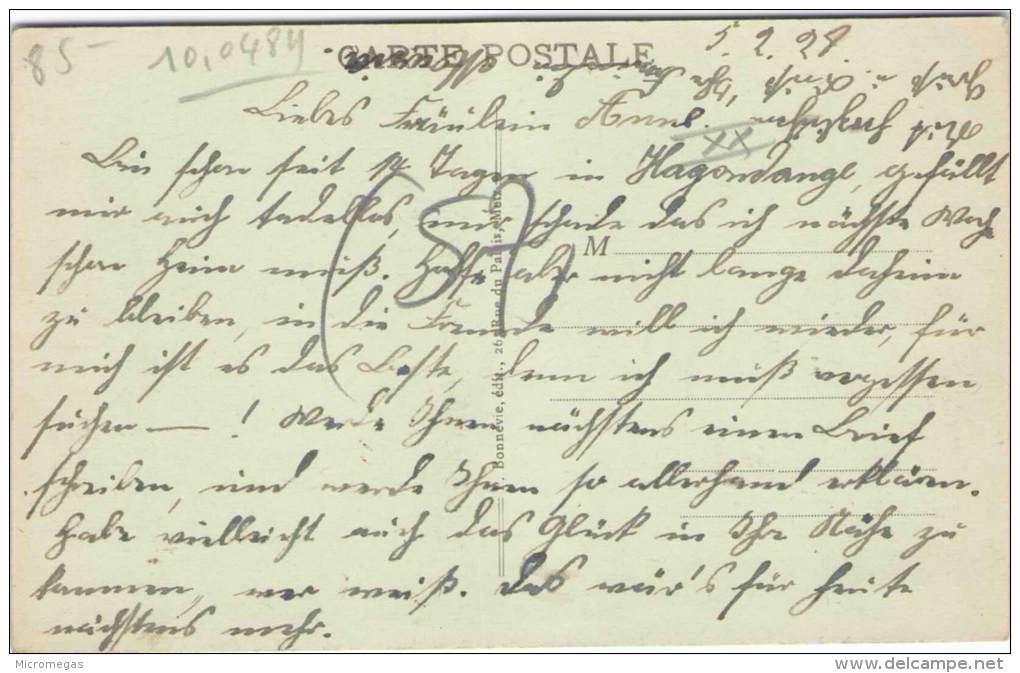 85-
10,0484
CARTE POSTALE
5.2.28
Liebes Fräulein Anne
XX
Bin schon seit 14 Tagen in Hagondange, gefällt
mir auch tadellos, nur schade das ich nächste Woche
schon Heim muß. Hoffe aber nicht lange daheim
M
zu bleiben, in die Fremde will ich wieder, für
mich ist es das Beste, denn ich muß vergessen
suchen — ! Werde Ihnen nächstens einen Brief
schreiben, und werde Ihnen so allerhand erklären.
Habe vielleicht auch das Glück in Ihre Nähe zu
kommen, wer weiß. Das wär's für heute
nächstens mehr.
Bonnevie, édit., 26, Rue du Palais, Metz
(57)
Micromegas
delcampe.net